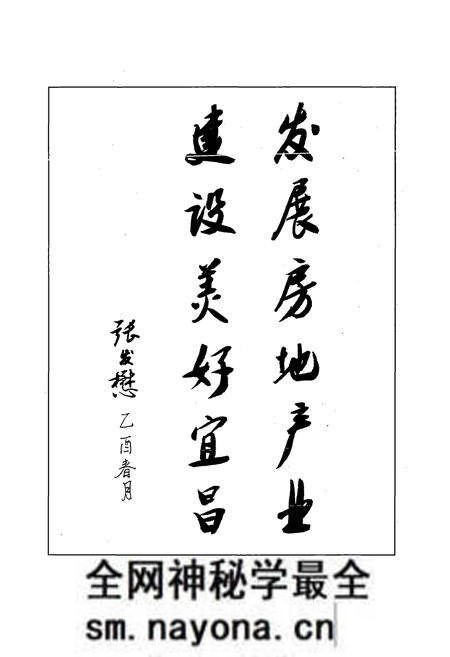 发展房地产业
建设美好宜昌
张发懋
乙酉春月
全网神秘学最全
sm.nayona.cn